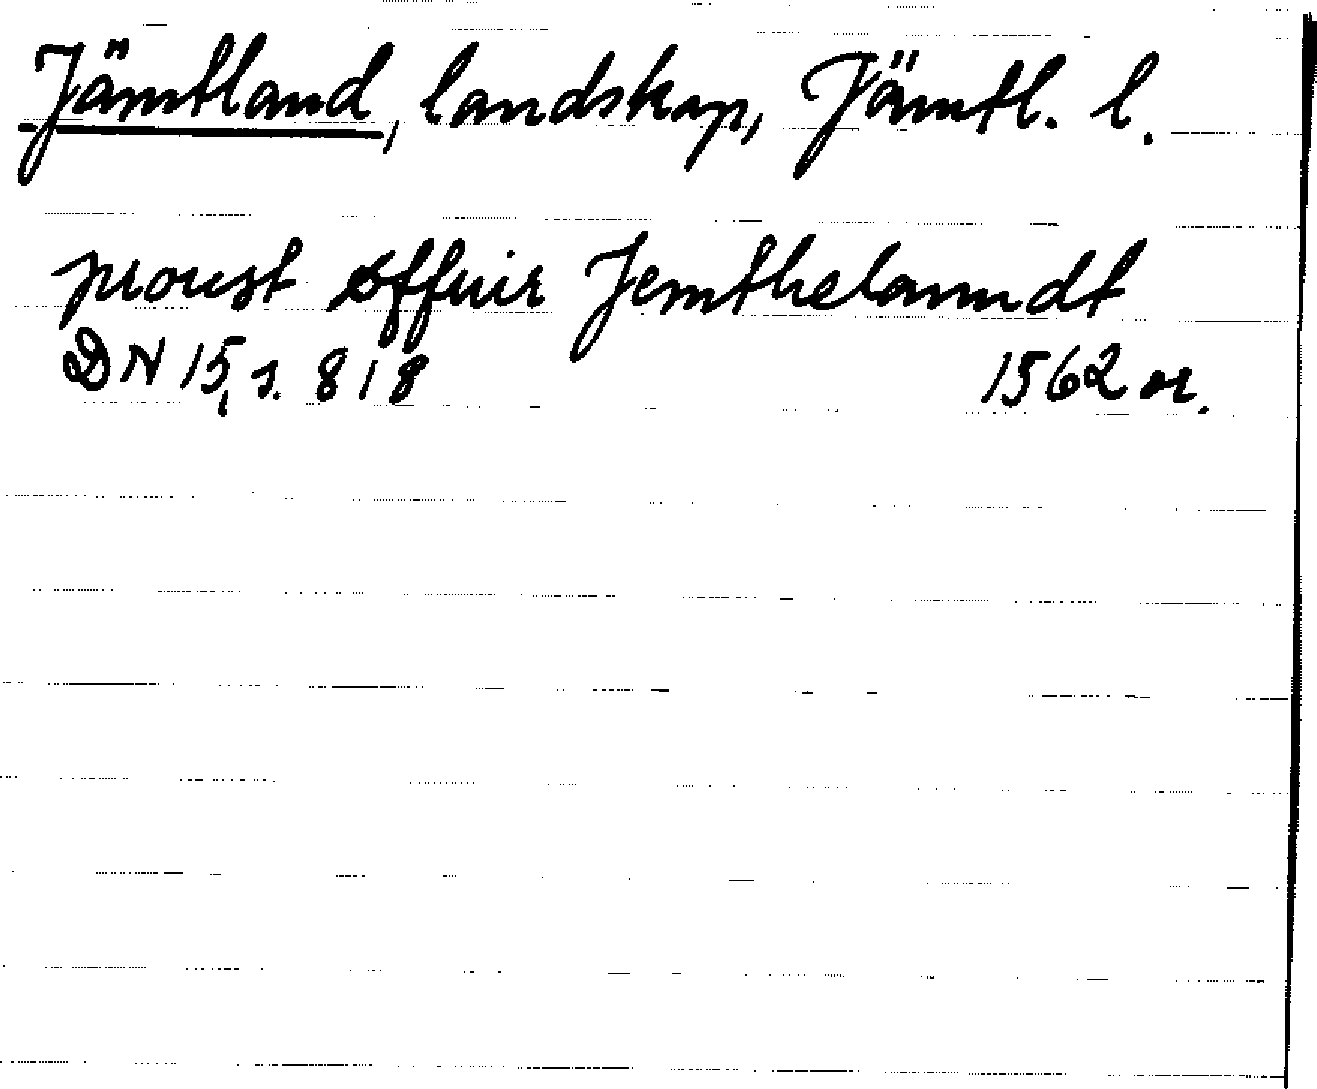 Jämtland, landskap, Jämtl. l.
proust øffuir Jemthelanndt
DN 15, s. 818 1562 or.